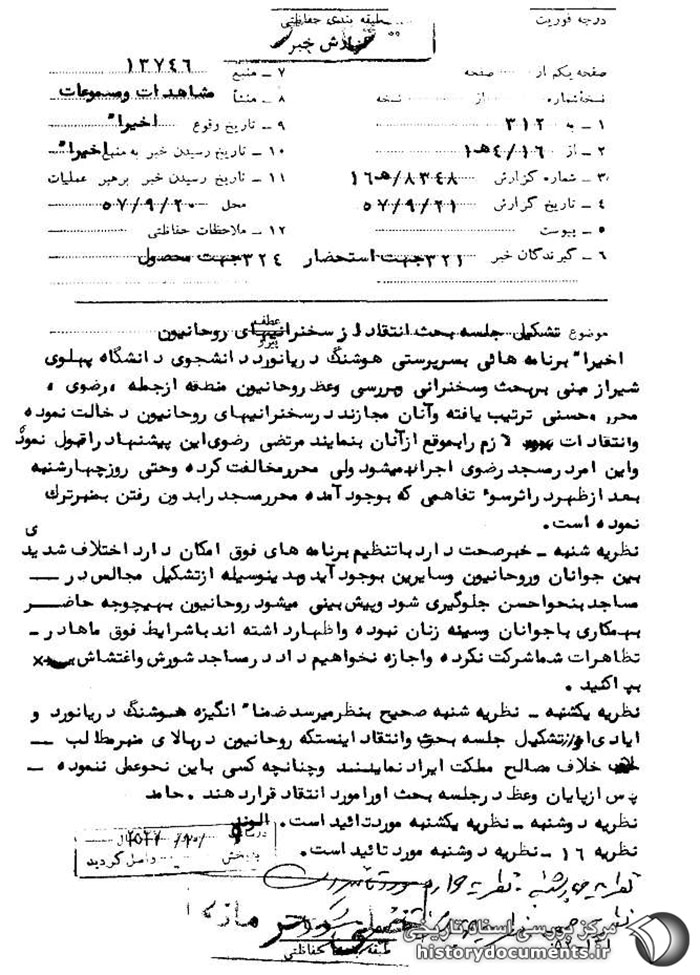 درجه فوریت
طبقه بندی حفاظتی
گزارش خبر
صفحه یکم از صفحه
نسخه شماره از نسخه
۱ ـ به ۳۱۲
۲ ـ از ۱۶/۴هـ۱
۳ ـ شماره گزارش ۸۳۴۸/هـ۱۶
۴ ـ تاریخ گزارش ۵۷/۹/۲۱
۵ ـ پیوست
۶ ـ گیرندگان خبر ۳۲۱جهت استحضار ۳۲۴جهت محصول
۷ ـ منبع ۱۳۷۴۶
۸ ـ منشأ مشاهدات ومسموعات
۹ ـ تاریخ وقوع اخیرا"
۱۰ ـ تاریخ رسیدن خبر به منبع اخیرا"
۱۱ ـ تاریخ رسیدن خبر برهبر عملیات
محل ۵۷/۹/۲۰
۱۲ ـ ملاحظات حفاظتی
موضوع تشکیل جلسه بحث انتقاد از سخنرانیهای روحانیون
عطف
پیرو
اخیرا" برنامه هائی بسرپرستی هوشنگ دریانورد دانشجوی دانشگاه پهلوی
شیراز مبنی بربحث وسخنرانی وبررسی وعظ روحانیون منطقه ازجمله ، رضوی ،
محرر ، حسنی ترتیب یافته وآنان مجازند درسخنرانیهای روحانیون دخالت نموده
وانتقادات لازم رابموقع ازآنان بنمایند مرتضی رضوی این پیشنهاد راقبول نموده
واین امر درمسجد رضوی اجرا میشود ولی محررمخالفت کرده وحتی روزچهارشنبه
بعد ازظهر در اثرسوء تفاهمی که بوجود آمده محررمسجد رابدون رفتن بمنبرترک
نموده است.
نظریه شنبه ـ خبرصحت دارد باتنظیم برنامه های فوق امکان دارد اختلاف شدیدی
بین جوانان وروحانیون وسایرین بوجود آید وبدینوسیله ازتشکیل مجالس در ــ
مساجد بنحواحسن جلوگیری شود وپیش بینی میشود روحانیون بهیچوجه حاضر
بهمکاری باجوانان وسینه زنان نبوده واظهارداشته اند باشرایط فوق ماهادر ـ
تظاهرات شماشرکت نکرده واجازه نخواهیم داد درمساجد شورش واغتشاش
بپاکنید .
نظریه یکشنبه ـ نظریه شنبه صحیح بنظرمیرسد ضمنا" انگیزه هوشنگ دریانورد و
ایادی او ازتشکیل جلسه بحث وانتقاد اینستکه روحانیون دربالای منبرمطالب ــ
خلاف مصالح مملکت ایراد نمایند وچنانچه کسی باین نحوعمل ننموده ــ
پس ازپایان وعظ درجلسه بحث اورامورد انتقاد قراردهند . حامد
نظریه دوشنبه ـ نظریه یکشنبه موردتائید است. الوند
نظریه ۱۶ ـ نظریه دوشنبه مورد تائید است.
به بخش واصل گردید
نظریه چهارشنبه ـ نظریه
طبقه بندی حفاظتی
مرکز بررسی اسناد تاریخی
historydocuments.ir